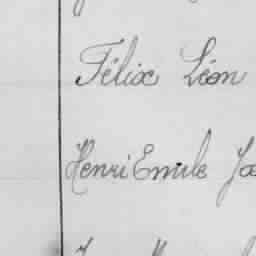 Félix Léon
Henri Emile